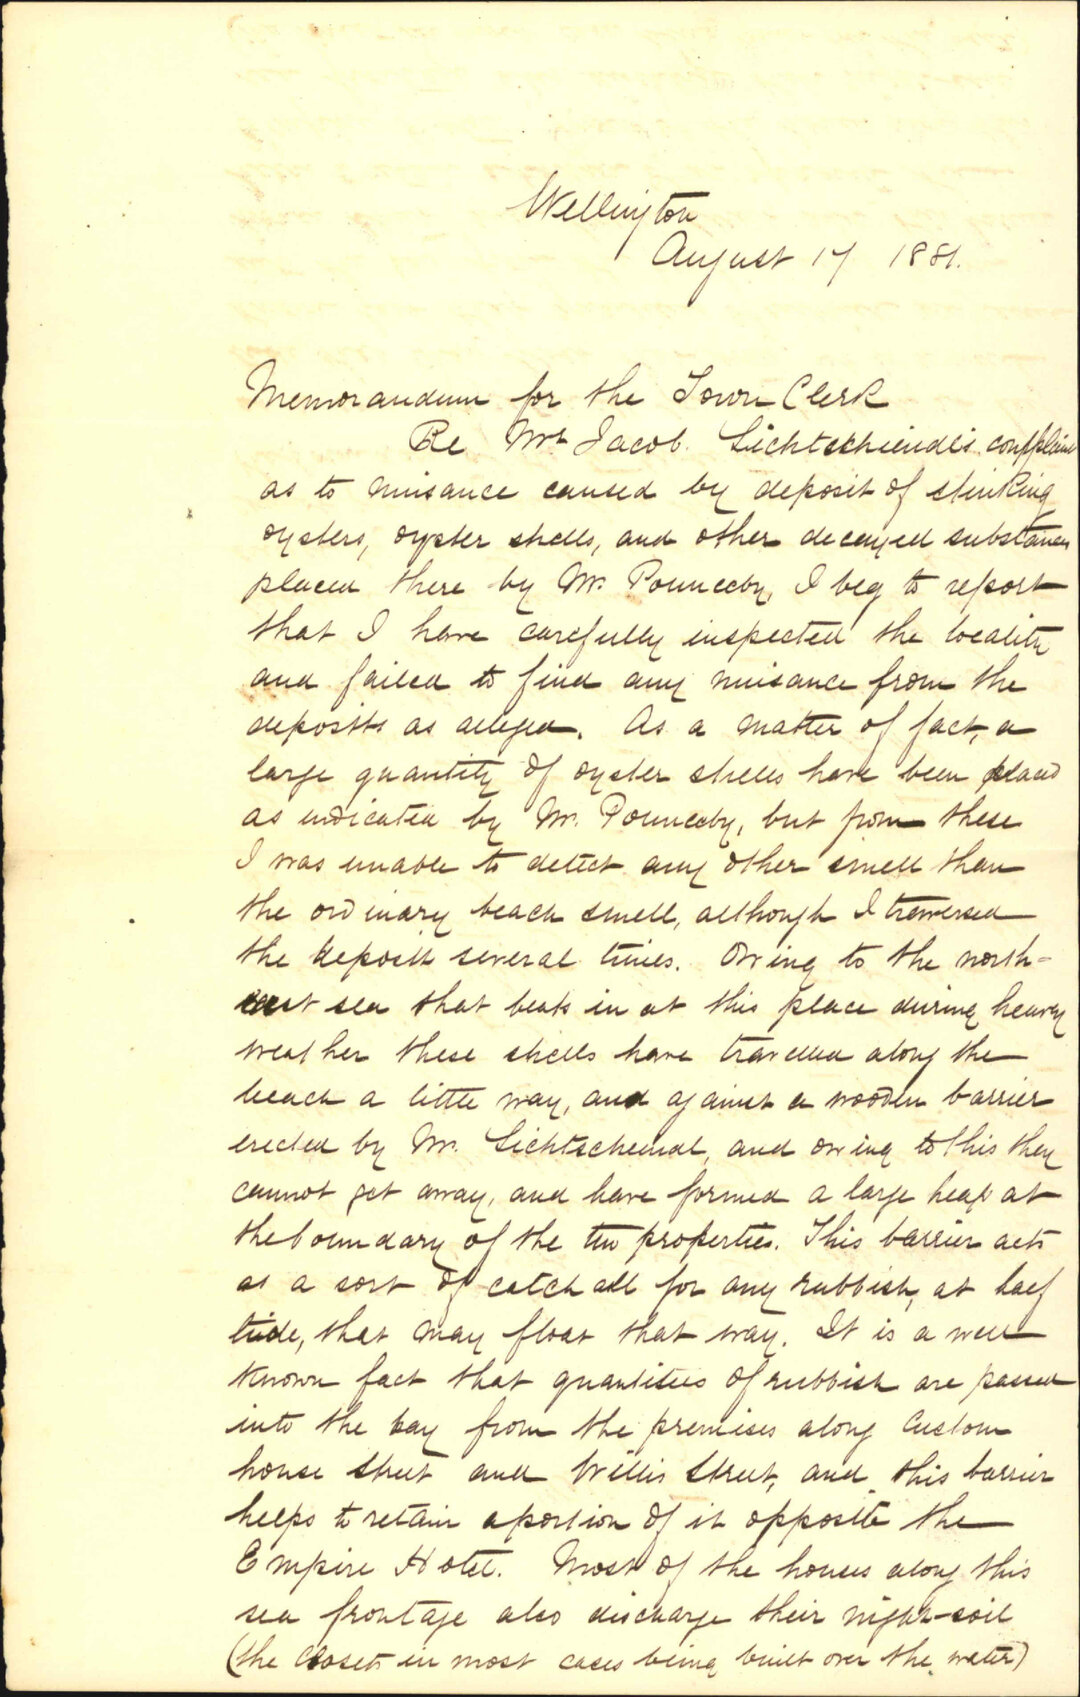 Wellington
August 17 1881.
Memorandum for the Town Clerk
Re Mr. Jacob. Lichtschiendl's complaint
as to nuisance caused by deposit of stinking
oysters, oyster shells, and other decayed substances
placed there by Mr. Pounceby, I beg to report
that I have carefully inspected the locality
and failed to find any nuisance from the
deposits as alleged. As a matter of fact, a
large quantity of oyster shells have been placed
as indicated by Mr. Pounceby, but from these
I was unable to detect any other smell than
the ordinary beach smell, although I traversed
the deposit several times. Owing to the north-
east sea that beats in at this place during heavy
weather these shells have travelled along the
beach a little way, and against a wooden barrier
erected by Mr. Lichtscheindl, and owing to this they
cannot get away, and have formed a large heap at
the boundary of the two properties. This barrier acts
as a sort of catch all for any rubbish, at half
tide, that may float that way. It is a well
known fact that quantities of rubbish are passed
into the bay from the premises along Custom
house Street and Willis Street, and this barrier
helps to retain a portion of it opposite the
Empire Hotel. Most of the houses along this
sea frontage also discharge their night-soil
(the closets in most cases being built over the water)